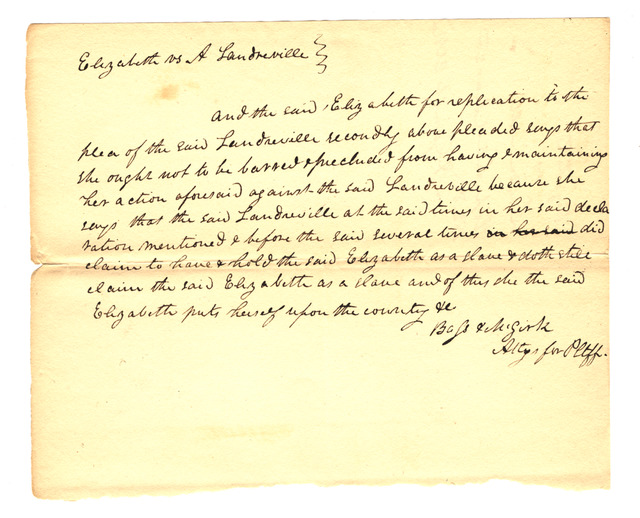 Elizabeth vs A Landreville
And the said Elizabeth for replication to the
plea of the said Landreville secondly above pleaded says that
she ought not to be barred & precluded from having & maintaining
her action aforesaid against the said Landreville because she
says that the said Landreville at the said times in her said decla
ration mentioned & before the said several times in her said did
claim to have & hold the said Elizabeth as a slave & doth still
claim the said Elizabeth as a slave and of this she the said
Elizabeth puts herself upon the country &c
Bass & McGirk
Attys for Pltff.